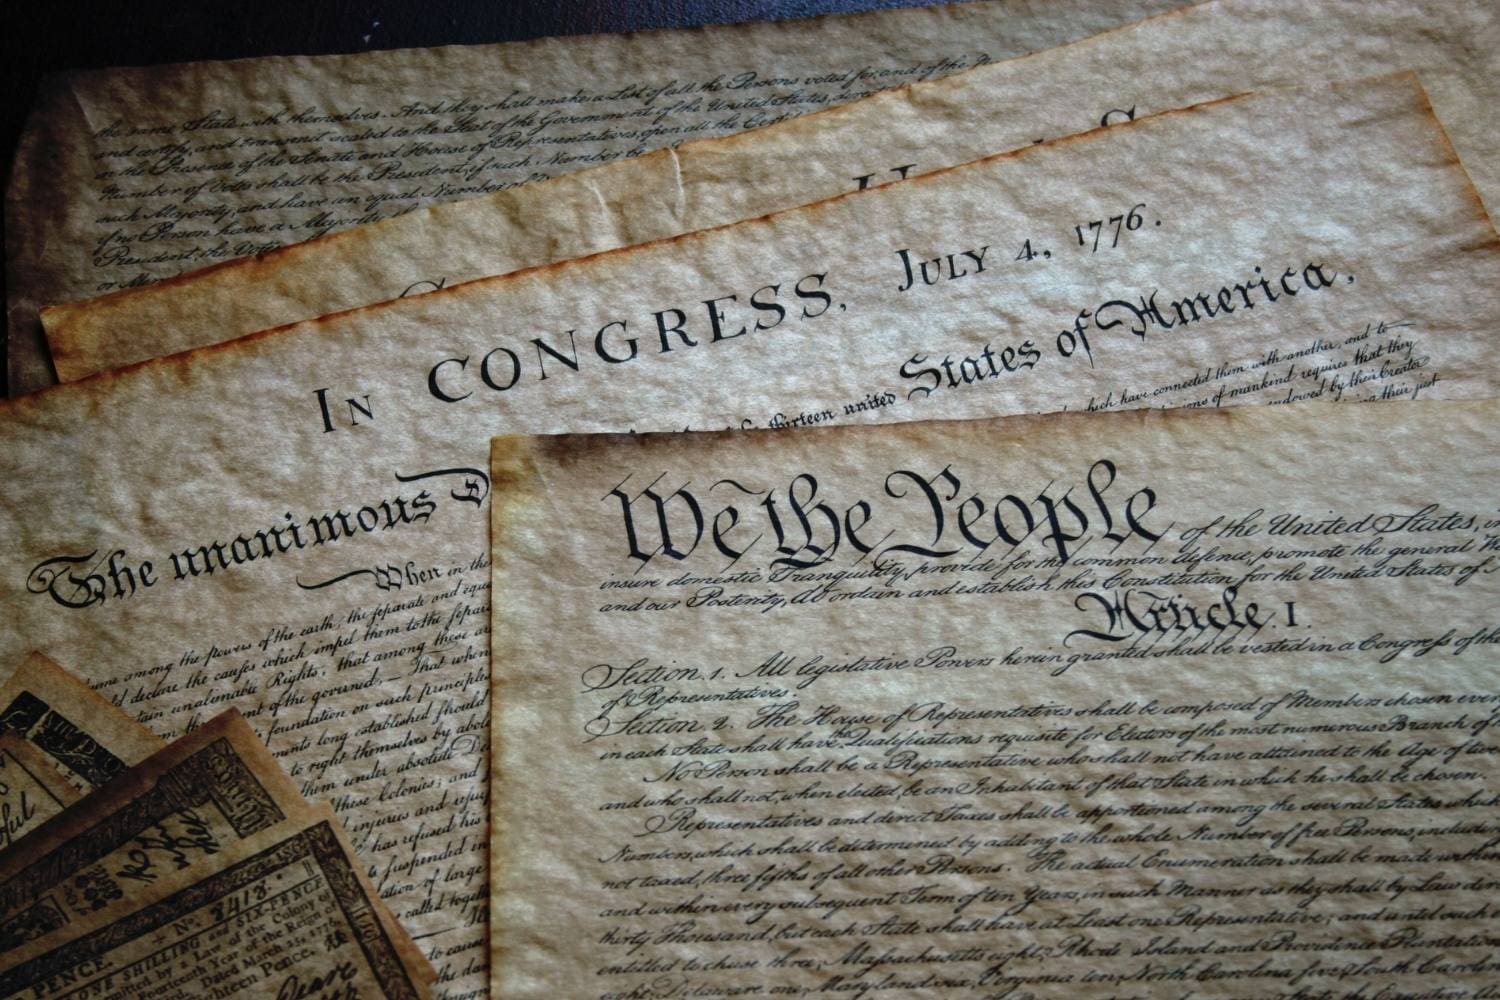 the same State with themselves. And they shall make a List of all the Persons voted for, and of the
and certify, and transmit sealed to the Seat of the Government of the United States, direc
in the Presence of the Senate and House of Representatives, open all the Certi
Number of Votes shall be the President, if such Number be
such Majority, and have an equal Number of
if no Person have a Majority
President, the Votes
or
In CONGRESS, July 4, 1776.
The unanimous D
thirteen united States of America,
When in the
which have connected them with another, and to
of mankind requires that they
endowed by their Creator
their just
among the powers of the earth, the separate and equ
declare the causes which impel them to the separ
unalienable Rights, that among these are
of the governed, — That when
foundation on such principles
long established should
to right themselves by abol
them under absolute Des
these Colonies; and
injuries and usurp
has refused his
suspended in
of large
called togeth
to cause
the dan
We the People of the United States, in
insure domestic Tranquility, provide for the common defence, promote the general
and our Posterity, do ordain and establish this Constitution for the United States of
Article. I.
Section. 1. All legislative Powers herein granted shall be vested in a Congress of the
of Representatives.
Section 2. The House of Representatives shall be composed of Members chosen ever
in each State shall have the Qualifications requisite for Electors of the most numerous Branch of
No Person shall be a Representative who shall not have attained to the Age of twe
and who shall not, when elected, be an Inhabitant of that State in which he shall be chosen.
Representatives and direct Taxes shall be apportioned among the several States which
Numbers, which shall be determined by adding to the whole Number of free Persons, includin
not taxed, three fifths of all other Persons. The actual Enumeration shall be made within
and within every subsequent Term of ten Years, in such Manner as they shall by Law dire
thirty Thousand, but each State shall have at Least one Representative; and until such
entitled to chuse three, Massachusetts eight, Rhode Island and Providence Plantation
eight, Delaware one, Maryland six, Virginia ten, North Carolina five, South Carolin
No. 8418.
PENCE.
ONE SHILLING and SIX-PENCE
by a Law of the Colony of
Fourteenth Year of the Reign of
Dated March 25, 177
Eighteen Pence.